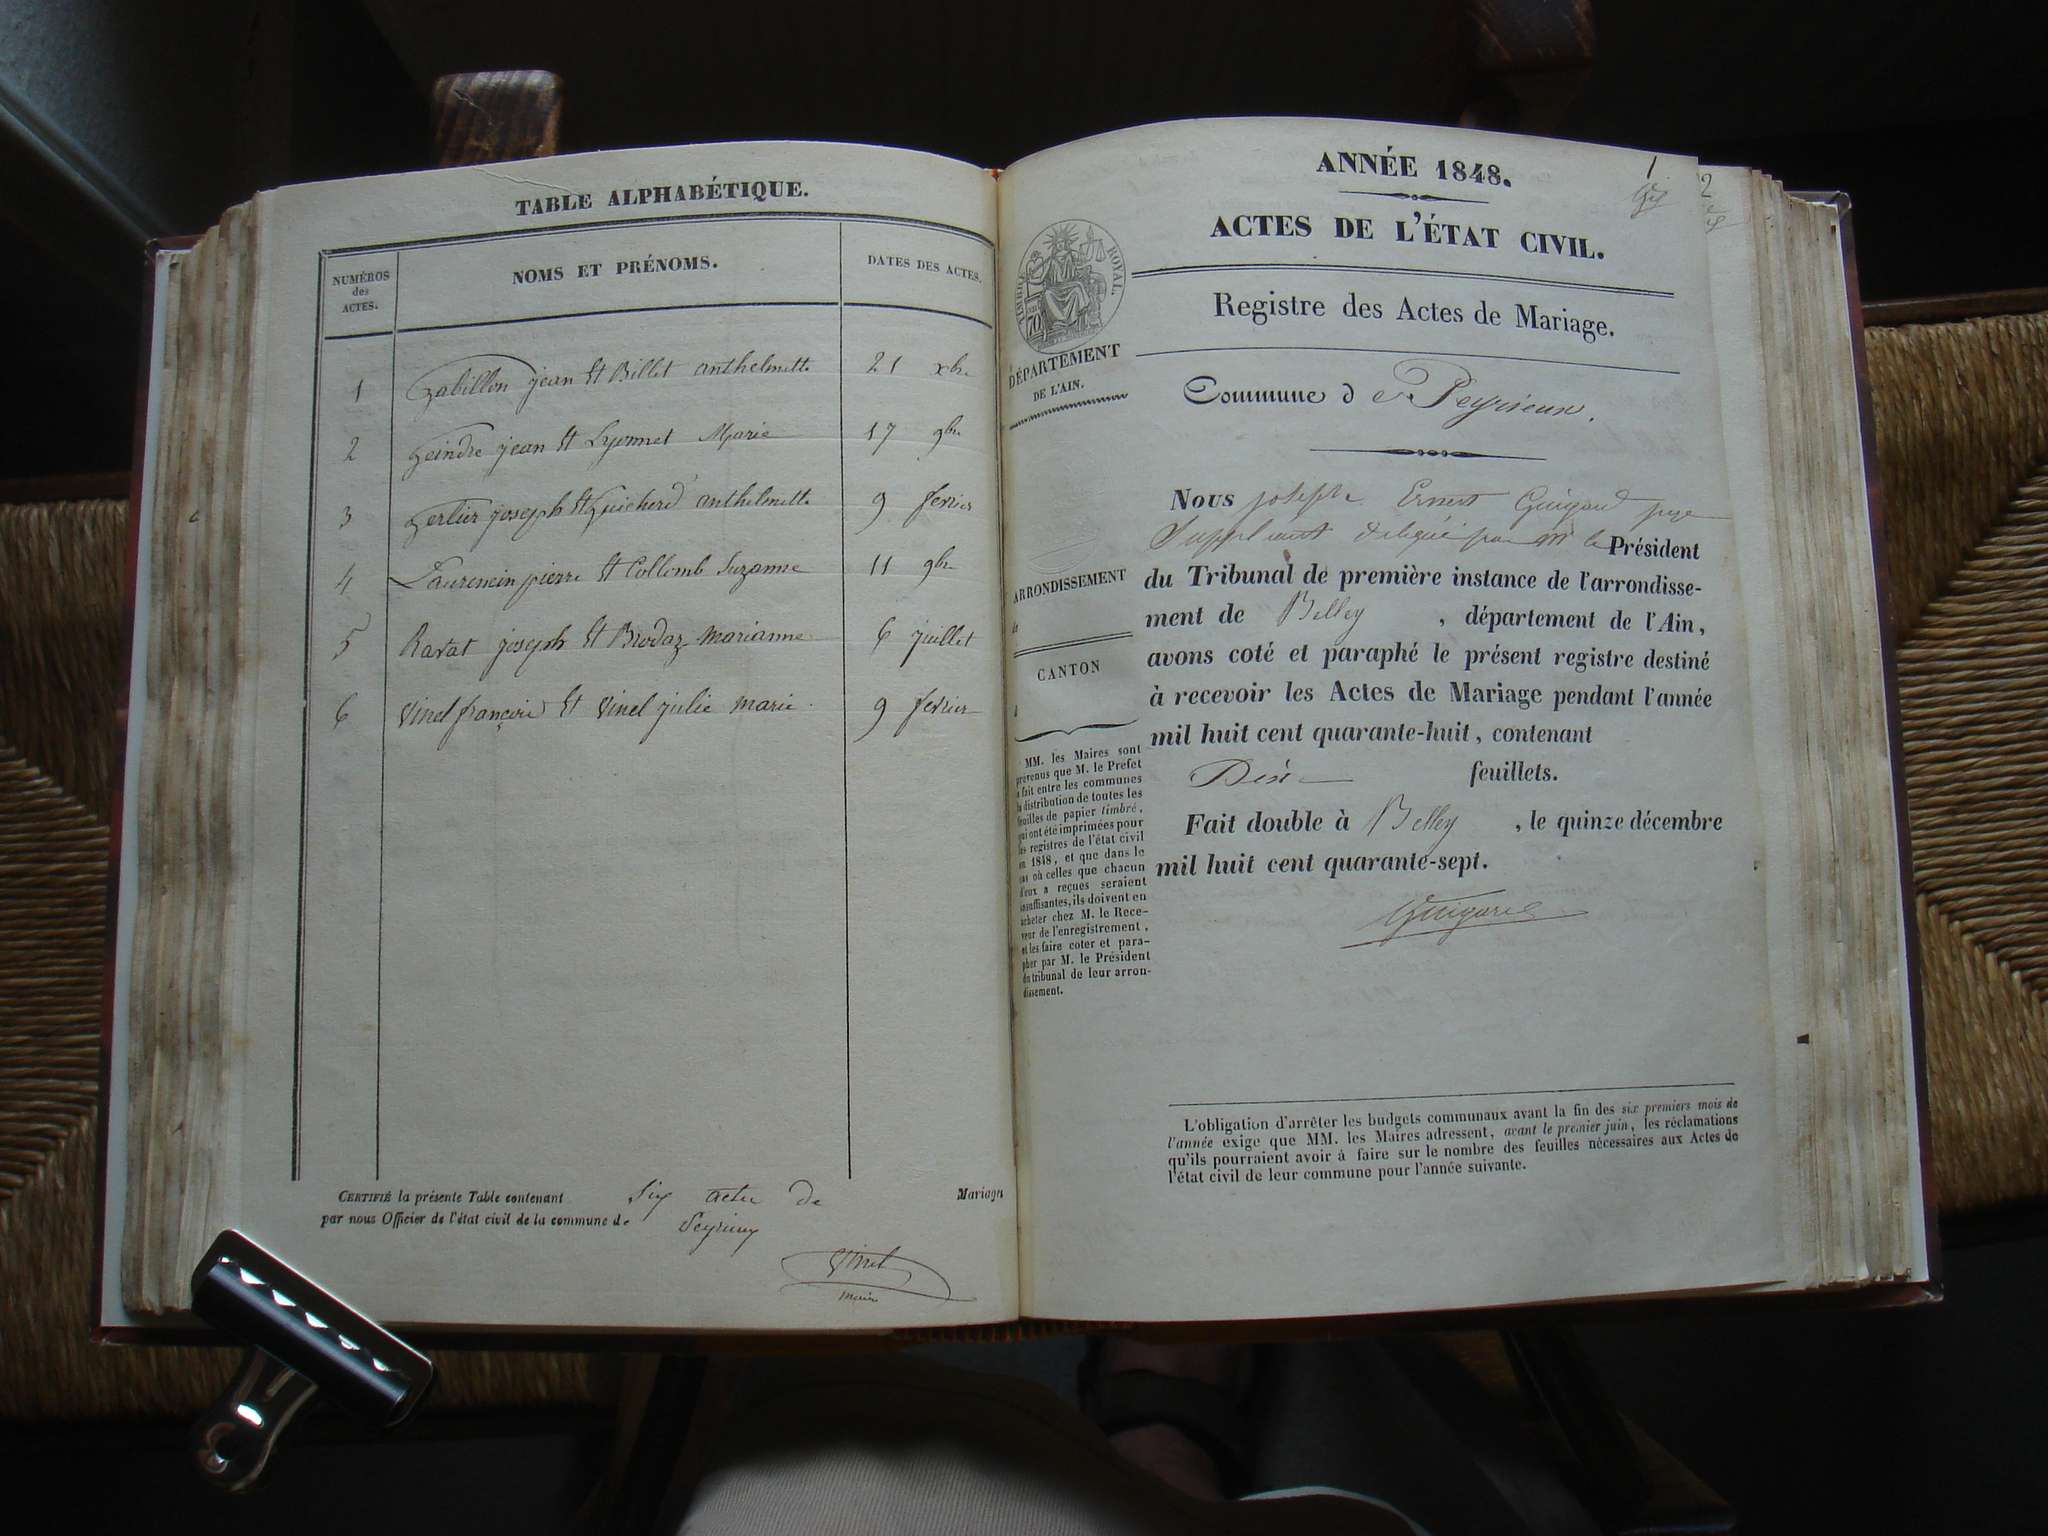 TABLE ALPHABÉTIQUE.
NUMÉROS
des
ACTES.
NOMS ET PRÉNOMS.
DATES DES ACTES.
1 Gabillon jean et Billet anthelmette 21 xbre
2 Geindre jean et Lyonnet Marie 17 9bre
3 Gerlier joseph et Guicherd anthelmette 9 fevrier
4 Laurencin pierre et Collomb Suzanne 11 9bre
5 Ravat joseph et Brodaz marianne 6 juillet
6 Vinel françois et Vinel julie marie 9 fevrier
CERTIFIÉ la présente Table contenant six actes de Mariages
par nous Officier de l'état civil de la commune de Peyrieux
Vinel
maire
1
2
ANNÉE 1848.
ACTES DE L'ÉTAT CIVIL.
TIMBRE ROYAL.
70
Registre des Actes de Mariage.
DÉPARTEMENT
DE L'AIN.
Commune de Peyrieux.
Nous joseph Ernest Guigard juge
Suppléant délégué par Mr le Président
du Tribunal de première instance de l'arrondisse-
ment de Belley , département de l'Ain,
avons coté et paraphé le présent registre destiné
à recevoir les Actes de Mariage pendant l'année
mil huit cent quarante-huit, contenant
Dix feuillets.
Fait double à Belley , le quinze décembre
mil huit cent quarante-sept.
Guigard
ARRONDISSEMENT
de
CANTON
d
MM. les Maires sont
prévenus que M. le Prefet
a fait entre les communes
la distribution de toutes les
feuilles de papier timbré,
qui ont été imprimées pour
les registres de l'état civil
en 1848, et que dans le
cas où celles que chacun
d'eux a reçues seraient
insuffisantes, ils doivent en
acheter chez M. le Rece-
veur de l'enregistrement,
et les faire coter et para-
pher par M. le Président
du tribunal de leur arron-
dissement.
L'obligation d'arrêter les budgets communaux avant la fin des six premiers mois de
l'année exige que MM. les Maires adressent, avant le premier juin, les réclamations
qu'ils pourraient avoir à faire sur le nombre des feuilles nécessaires aux Actes de
l'état civil de leur commune pour l'année suivante.